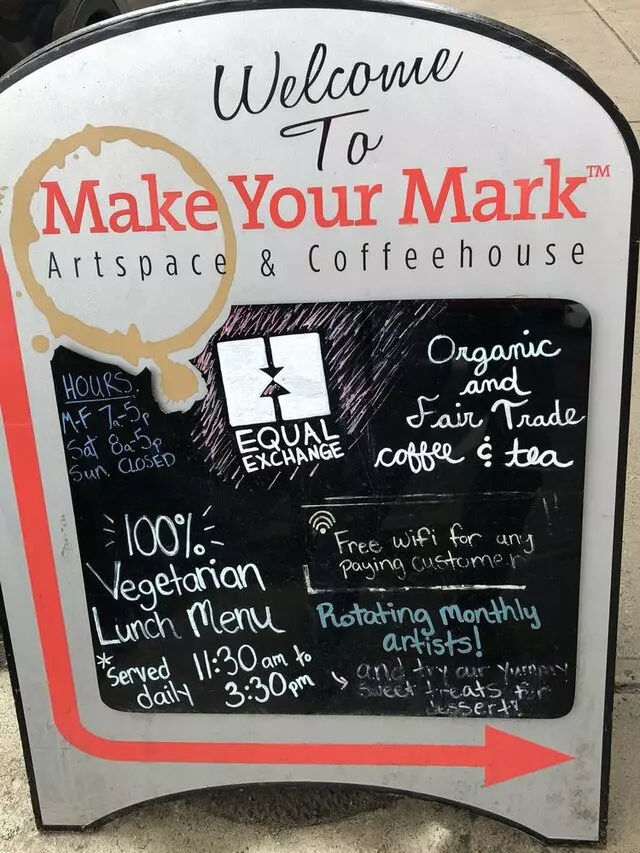 Welcome
To
Make Your Mark™
Artspace & Coffeehouse
HOURS
M-F 7a-5p
Sat 8a-5p
Sun. CLOSED
EQUAL
EXCHANGE
Organic
and
Fair Trade
coffee & tea
100%
Vegetarian
Lunch Menu
*Served 11:30 am to
daily 3:30pm
Free wifi for any
paying customer
Rotating Monthly
artists!
and try our yummy
sweet treats for
dessert!